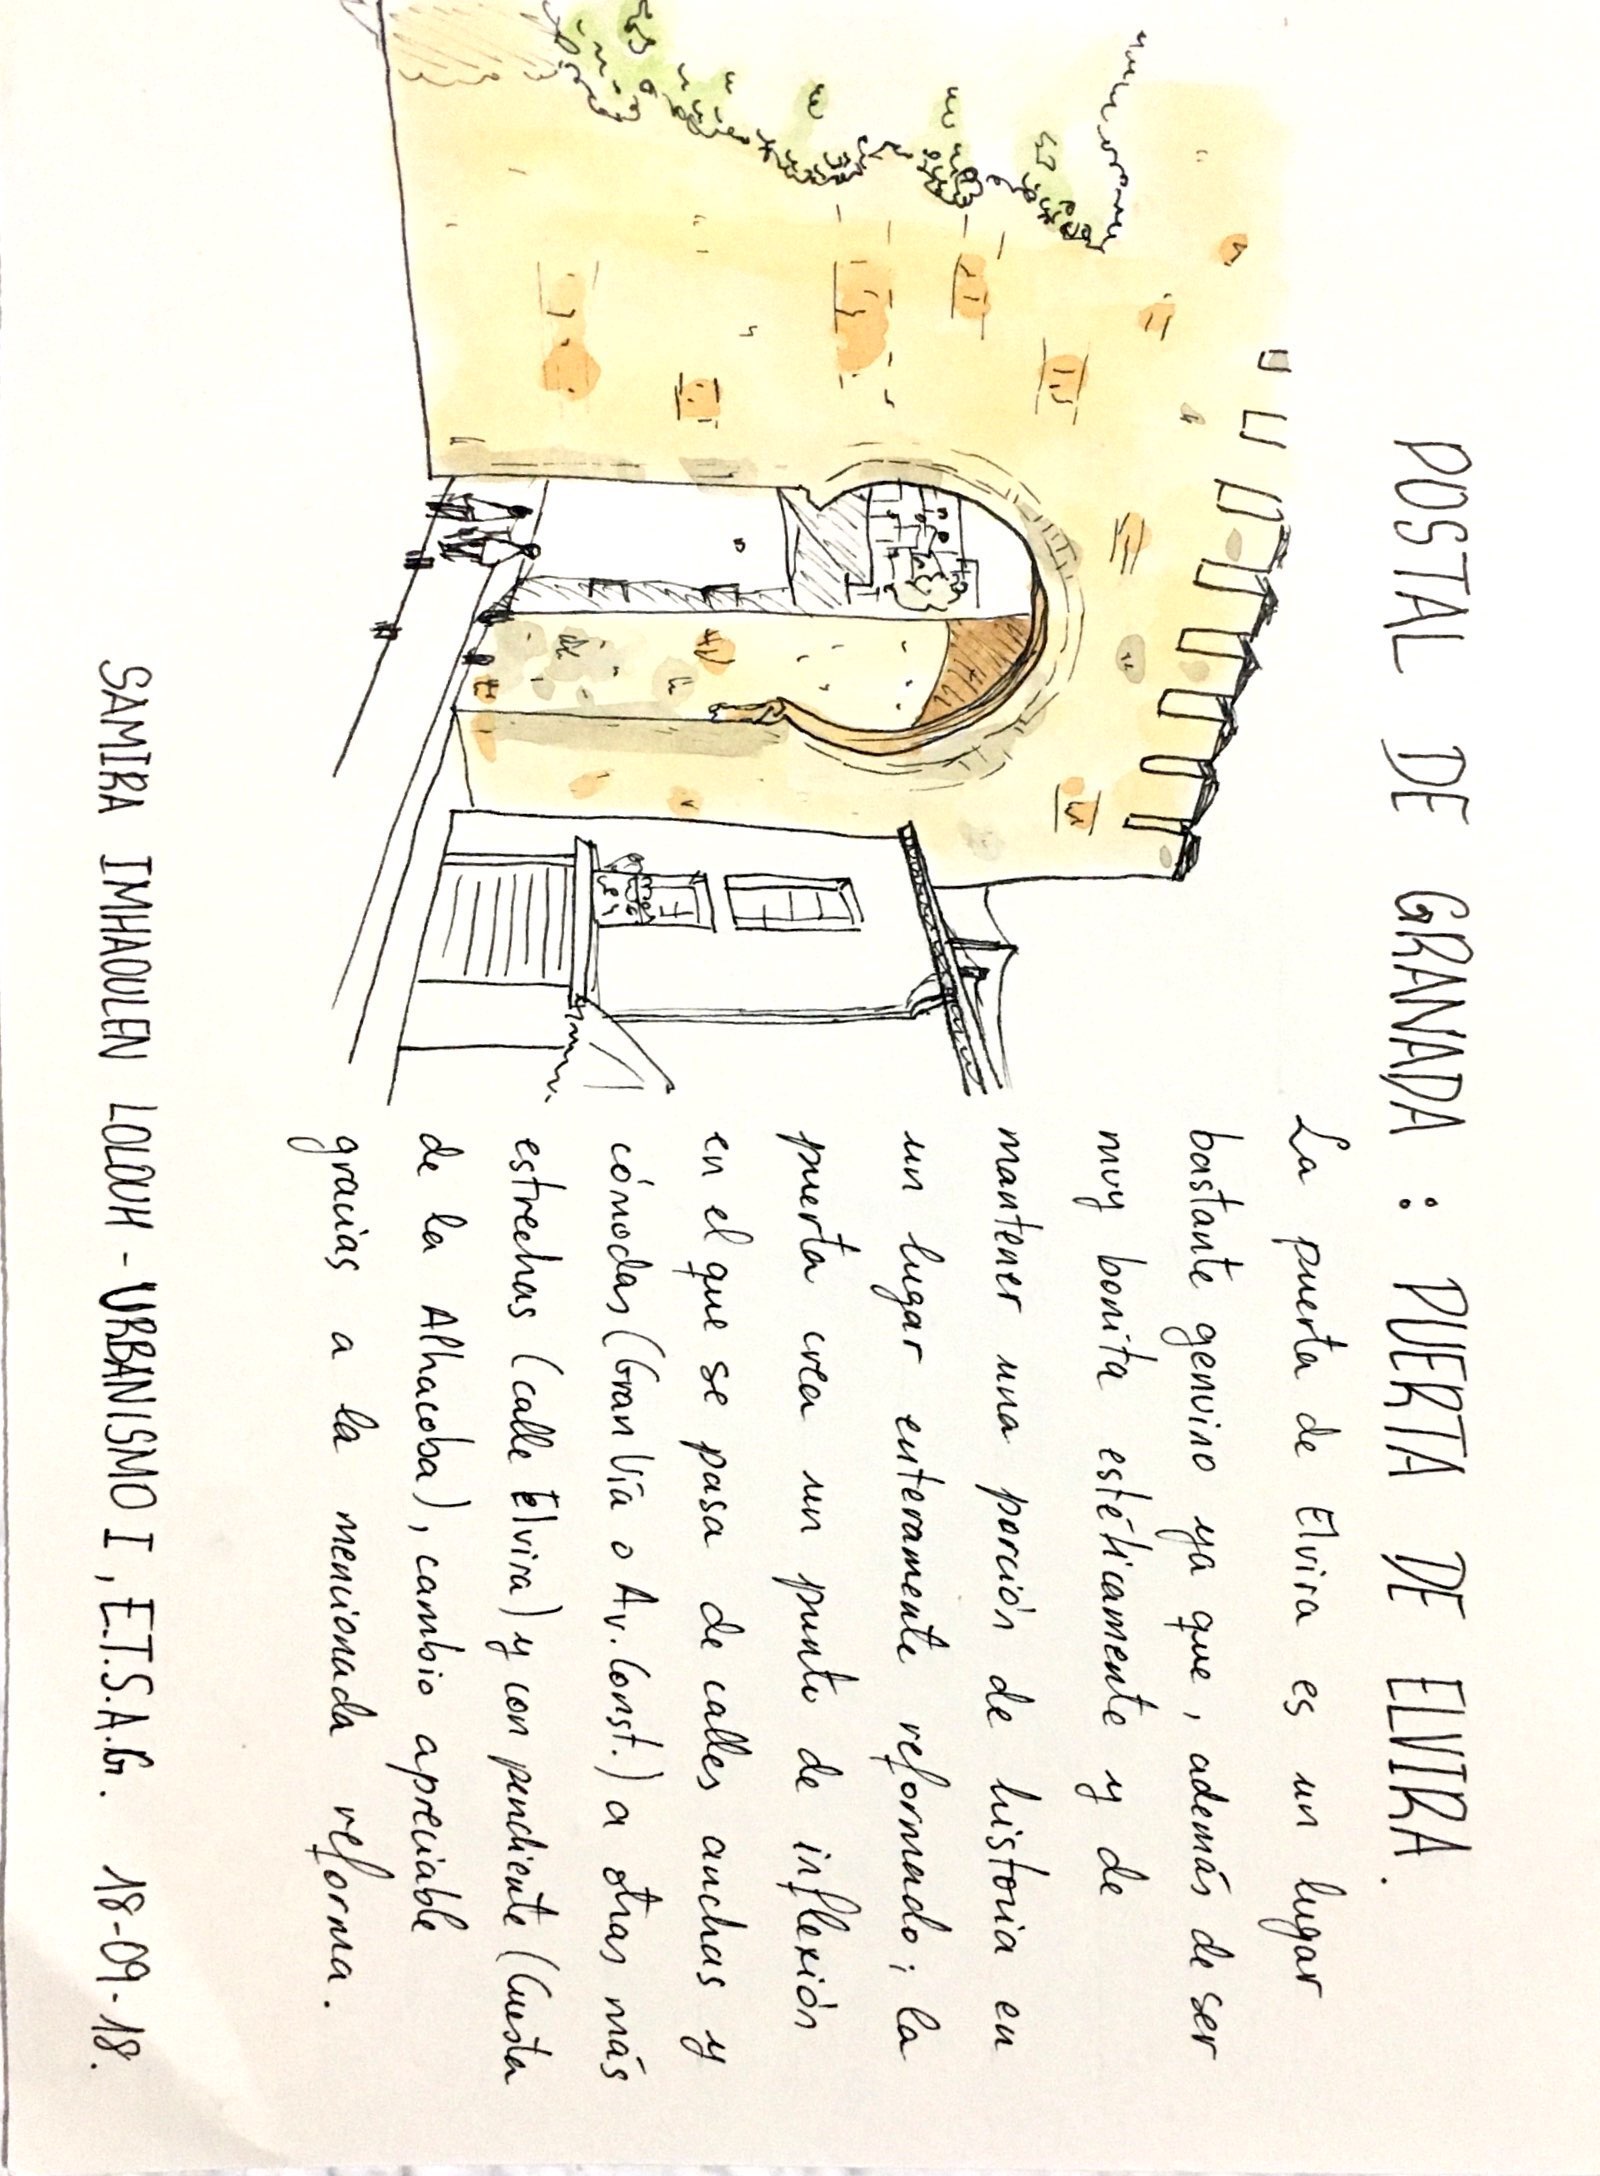 POSTAL DE GRANADA : PUERTA DE ELVIRA.
La puerta de Elvira es un lugar
bastante genuino ya que, además de ser
muy bonita estéticamente y de
mantener una porción de historia en
un lugar enteramente reformado; la
puerta crea un punto de inflexión
en el que se pasa de calles anchas y
cómodas (Gran Vía o Av. Const.) a otras más
estrechas (calle Elvira) y con pendiente (Cuesta
de la Alhacaba), cambio apreciable
gracias a la mencionada reforma.
SAMIRA IMHAOULEN LOLOUH - URBANISMO I, E.T.S.A.G. 18-09-18.